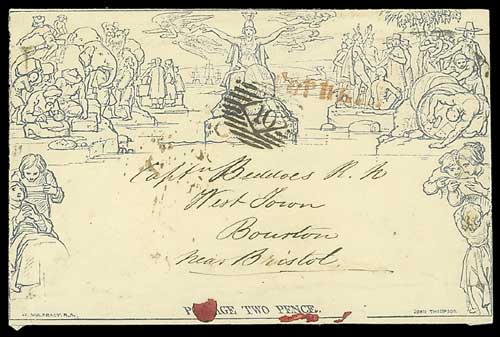 10
Captn Beddoes R. N
West Town
Bourton
near Bristol
POSTAGE TWO PENCE.
W. MULREADY. R.A.
JOHN THOMPSON